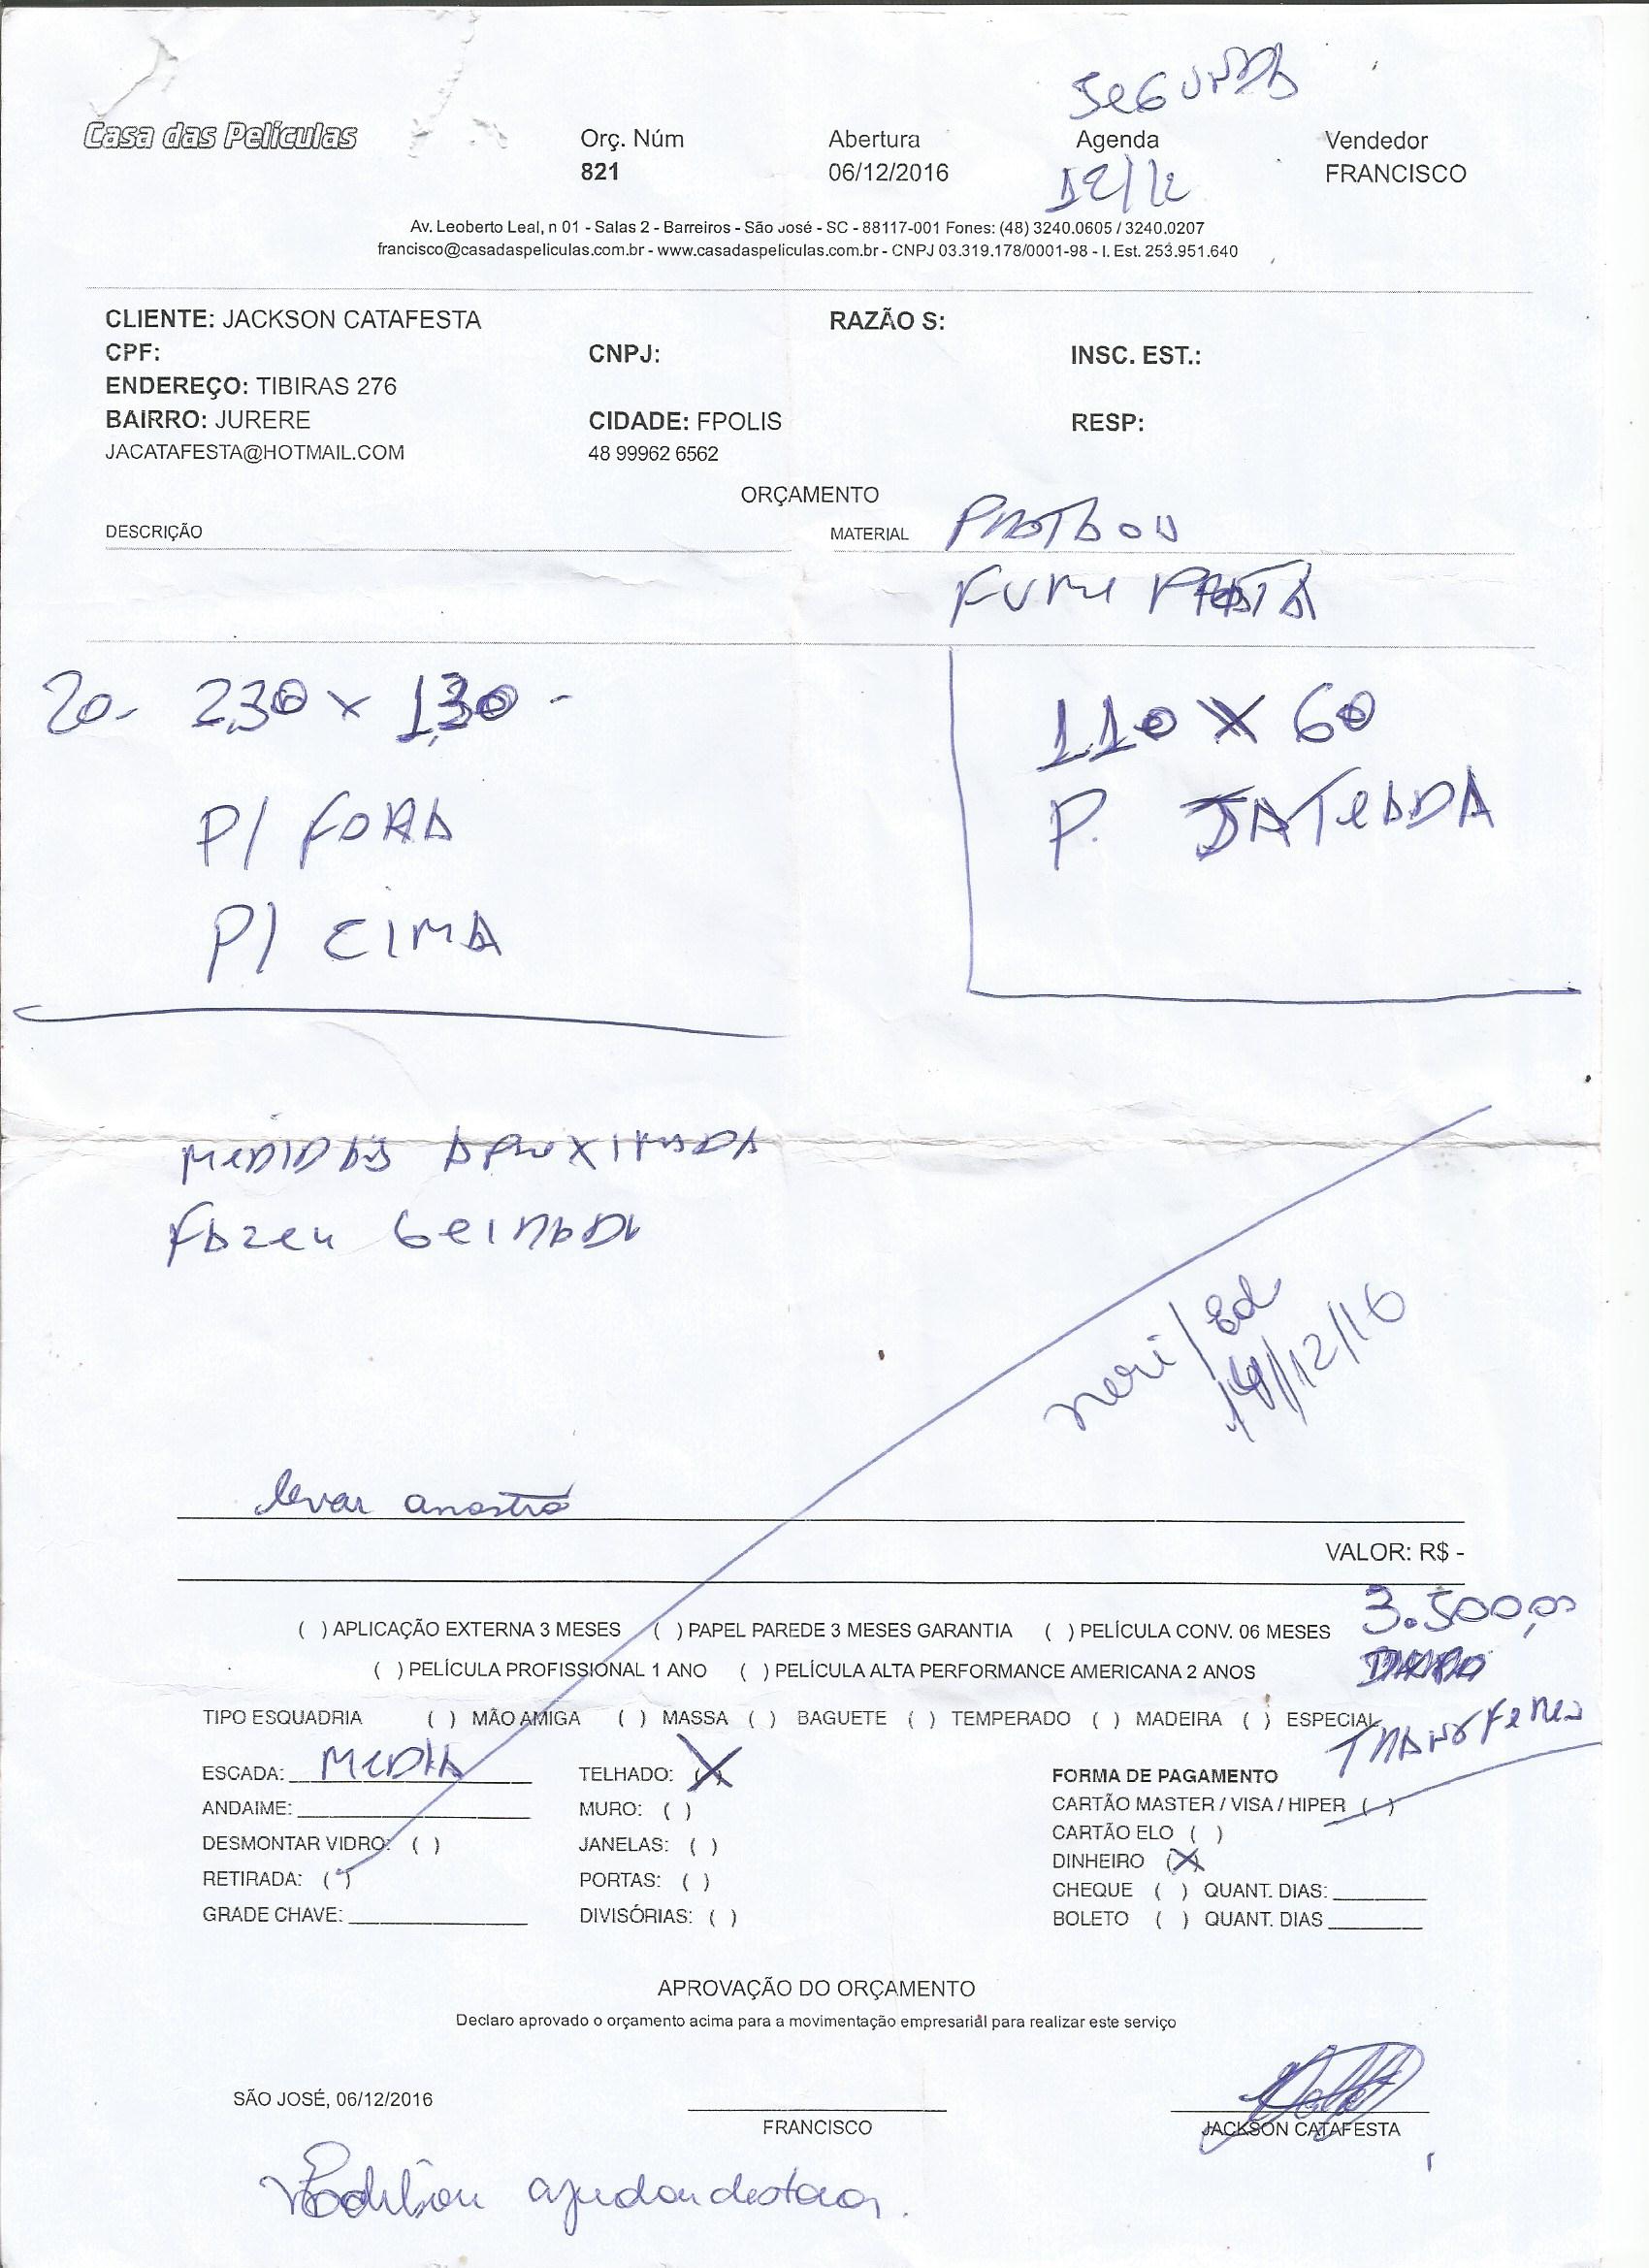 SEGUNDA
Casa das Películas Orç. Núm Abertura Agenda Vendedor
821 06/12/2016 12/12 FRANCISCO
Av. Leoberto Leal, n 01 - Salas 2 - Barreiros - São José - SC - 88117-001 Fones: (48) 3240.0605 / 3240.0207
francisco@casadaspeliculas.com.br - www.casadaspeliculas.com.br - CNPJ 03.319.178/0001-98 - I. Est. 253.951.640
CLIENTE: JACKSON CATAFESTA RAZÃO S:
CPF: CNPJ: INSC. EST.:
ENDEREÇO: TIBIRAS 276
BAIRRO: JURERE CIDADE: FPOLIS RESP:
JACATAFESTA@HOTMAIL.COM 48 99962 6562
ORÇAMENTO
DESCRIÇÃO MATERIAL
FUME PRATA
20- 2,30 x 1,30 -
P/ FORA
P/ CIMA
1.10 X 60
P. JATEADA
MEDIDAS APROXIMADA
FAZER
neri / Ed
14/12/16
levar
VALOR: R$ -
3.500,00
( ) APLICAÇÃO EXTERNA 3 MESES ( ) PAPEL PAREDE 3 MESES GARANTIA ( ) PELÍCULA CONV. 06 MESES
( ) PELÍCULA PROFISSIONAL 1 ANO ( ) PELÍCULA ALTA PERFORMANCE AMERICANA 2 ANOS
TIPO ESQUADRIA ( ) MÃO AMIGA ( ) MASSA ( ) BAGUETE ( ) TEMPERADO ( ) MADEIRA ( ) ESPECIAL
ESCADA: MEDIA TELHADO: (X) FORMA DE PAGAMENTO
ANDAIME: MURO: ( ) CARTÃO MASTER / VISA / HIPER ( )
DESMONTAR VIDRO: ( ) JANELAS: ( ) CARTÃO ELO ( )
DINHEIRO (X)
RETIRADA: ( ) PORTAS: ( ) CHEQUE ( ) QUANT. DIAS:
GRADE CHAVE: DIVISÓRIAS: ( ) BOLETO ( ) QUANT. DIAS
APROVAÇÃO DO ORÇAMENTO
Declaro aprovado o orçamento acima para a movimentação empresarial para realizar este serviço
SÃO JOSÉ, 06/12/2016
FRANCISCO JACKSON CATAFESTA